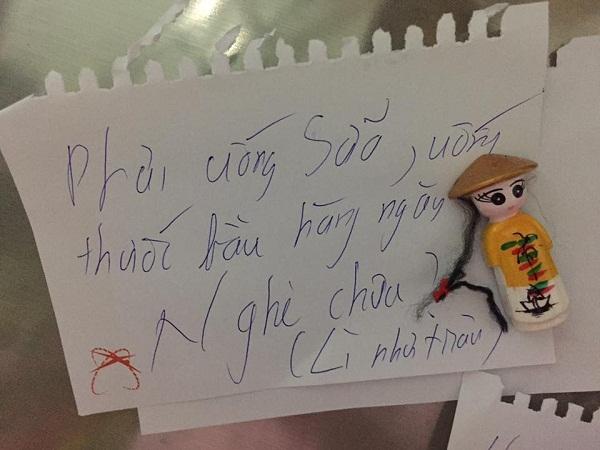 Phải uống Sữa, uống
thuốc bầu hàng ngày
Nghe chưa?
(Lì như trâu)